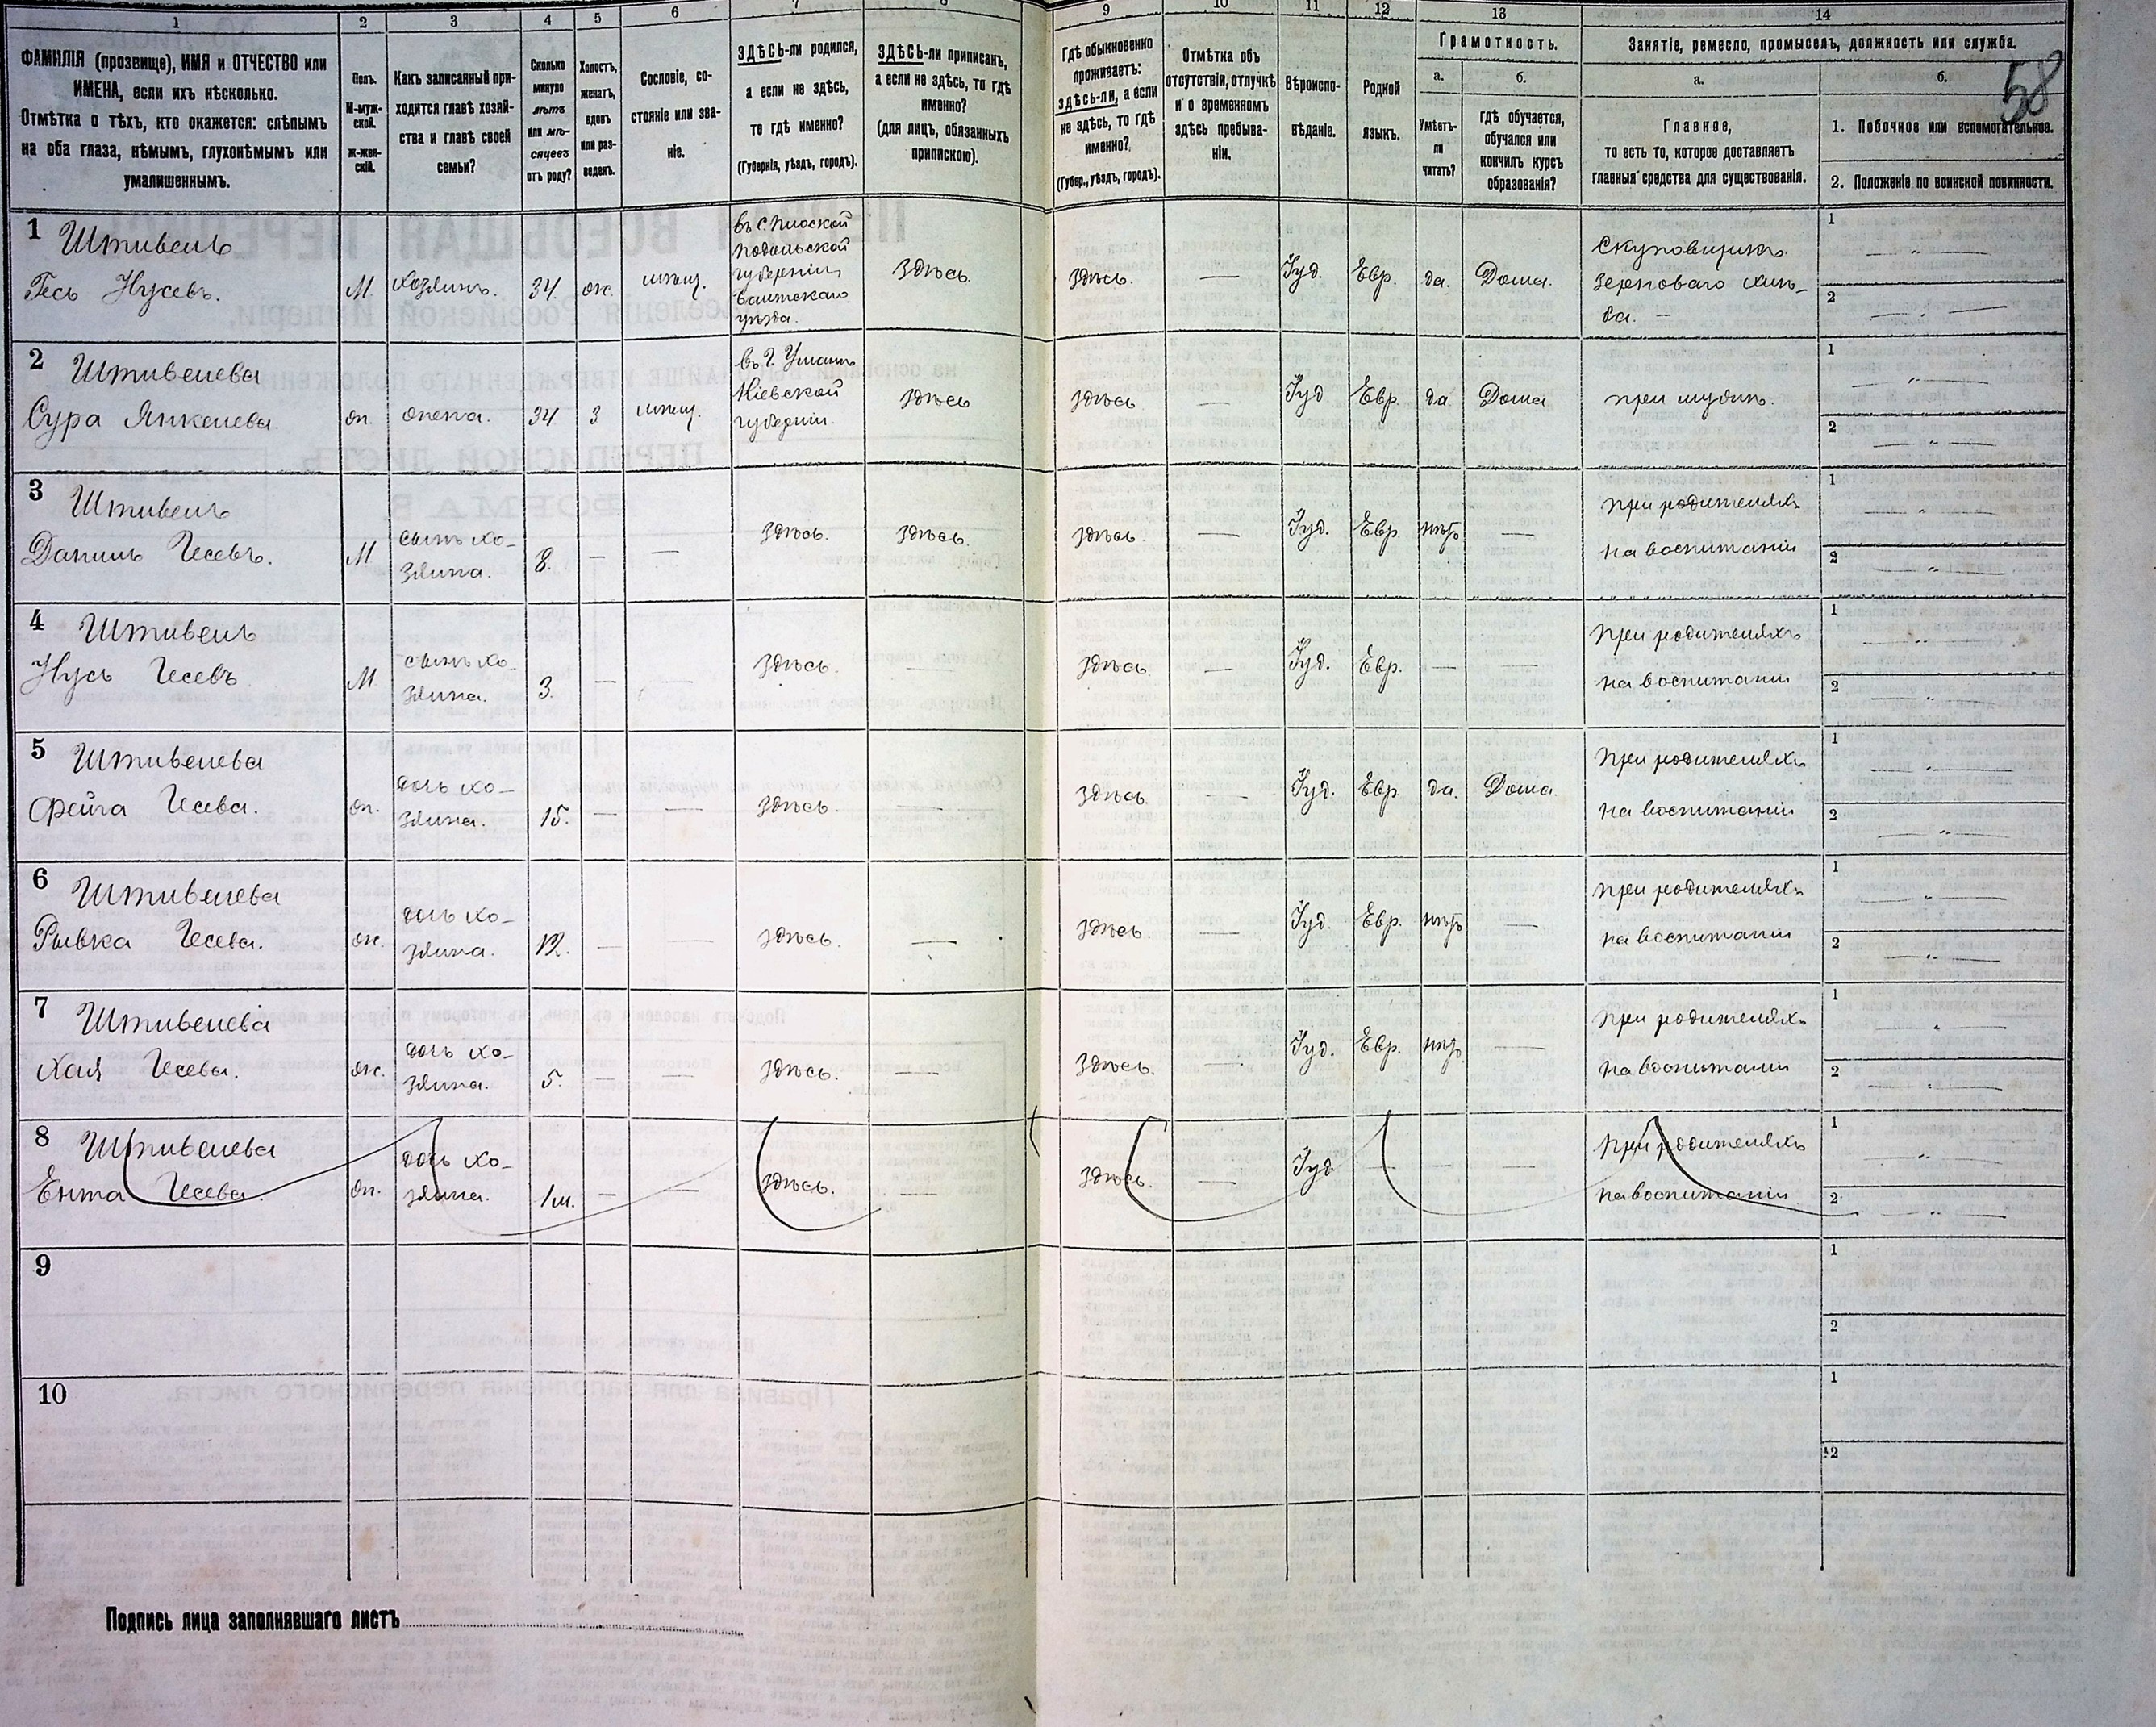 1 2 3 4 5 6 7 8 9 10 11 12 13 14
58
ФАМИЛІЯ (прозвище), ИМЯ и ОТЧЕСТВО или
ИМЕНА, если ихъ нѣсколько.
Отмѣтка о тѣхъ, кто окажется: слѣпымъ
на оба глаза, нѣмымъ, глухонѣмымъ или
умалишеннымъ.
Полъ.
М-муж-
ской.
Ж-жен-
скій.
Какъ записанный при-
ходится главѣ хозяй-
ства и главѣ своей
семьи?
Сколько
минуло
лѣтъ
или мѣ-
сяцевъ
отъ роду?
Холостъ,
женатъ,
вдовъ
или раз-
веденъ.
Сословіе, со-
стояніе или зва-
ніе.
ЗДѢСЬ-ли родился,
а если не здѣсь,
то гдѣ именно?
(Губернія, уѣздъ, городъ).
ЗДѢСЬ-ли приписанъ,
а если не здѣсь, то гдѣ
именно?
(для лицъ, обязанныхъ
припискою).
Гдѣ обыкновенно
проживаетъ:
здѣсь-ли, а если
не здѣсь, то гдѣ
именно?
(Губер., уѣздъ, городъ).
Отмѣтка объ
отсутствіи, отлучкѣ
и о временномъ
здѣсь пребыва-
ніи.
Вѣроиспо-
вѣданіе.
Родной
языкъ.
Грамотность.
а.
Умѣетъ-
ли
читать?
б.
гдѣ обучается,
обучался или
кончилъ курсъ
образованія?
Занятіе, ремесло, промыселъ, должность или служба.
а.
Главное,
то есть то, которое доставляетъ
главныя средства для существованія.
б.
1. Побочное или вспомогательное.
2. Положеніе по воинской повинности.
1 Штивель
Гесь Нусевъ.
М. хозяинъ. 34. ж. мѣщ.
въ с. Плоской
Подольской
губерніи,
Балтскаго
уѣзда.
здѣсь. здѣсь. — Іуд. Евр. да. Дома.
Скуповщикъ
зерноваго хлѣ-
ба. —
1 — „ —
2 — „ —
2 Штивелева
Сура Янкелева.
ж. жена. 34 з мѣщ.
въ г. Умань
Кіевской
губерніи.
здѣсь здѣсь — Іуд Евр. да Дома
при мужѣ.
1 — „ —
2 — „ —
3 Штивель
Даниль Гесевъ.
М
сынъ хо-
зяина.
8. — — здѣсь. здѣсь. здѣсь. — Іуд. Евр. нѣтъ —
при родителяхъ
на воспитаніи
1 — „ —
2 — „ —
4 Штивель
Нусь Гесевъ
М
сынъ хо-
зяина.
3. — — здѣсь. — здѣсь — Іуд. Евр. — —
при родителяхъ
на воспитаніи
1 — „ —
2 — „ —
5 Штивелева
Фейга Гесева.
ж.
дочь хо-
зяина.
15. — — здѣсь. — здѣсь. — Іуд. Евр. да. Дома.
при родителяхъ
на воспитаніи
1 — „ —
2 — „ —
6 Штивелева
Рывка Гесева.
ж.
дочь хо-
зяина.
12. — — здѣсь. — здѣсь. — Іуд. Евр. нѣтъ —
при родителяхъ
на воспитаніи
1 — „ —
2 — „ —
7 Штивелева
Хая Гесева.
ж.
дочь хо-
зяина.
5. — — здѣсь. — здѣсь. — Іуд. Евр. нѣтъ —
при родителяхъ
на воспитаніи
1 — „ —
2 — „ —
8 Штивелева
Ента Гесева.
ж.
дочь хо-
зяина.
1 м. — — здѣсь. — здѣсь. — Іуд. — — —
при родителяхъ
на воспитаніи
1 — „ —
2 — „ —
9
1
2
10
1
2
Подпись лица заполнявшаго листъ